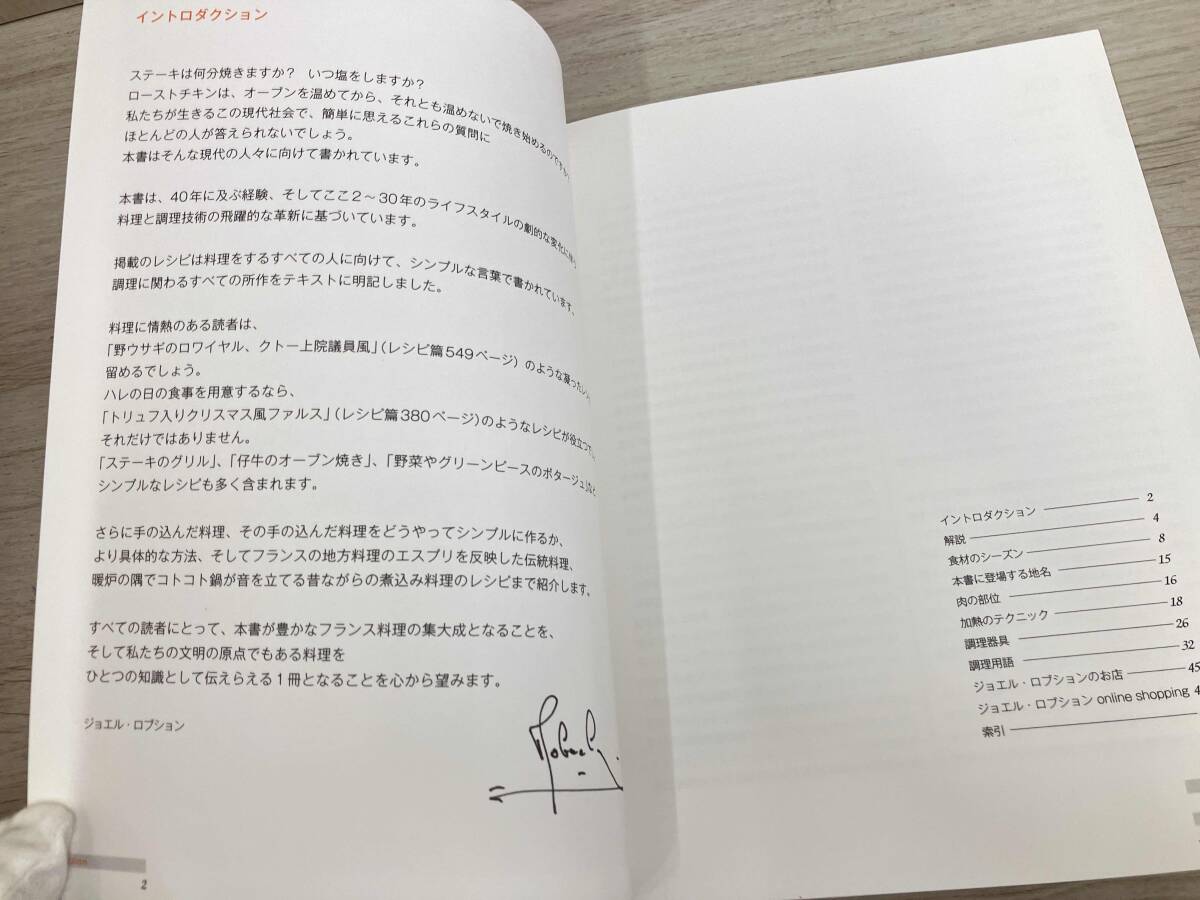 イントロダクション
ステーキは何分焼きますか？　いつ塩をしますか？
ローストチキンは、オーブンを温めてから、それとも温めないで焼き始めるのですか
私たちが生きるこの現代社会で、簡単に思えるこれらの質問に
ほとんどの人が答えられないでしょう。
本書はそんな現代の人々に向けて書かれています。
本書は、40年に及ぶ経験、そしてここ2～30年のライフスタイルの劇的な変化に
料理と調理技術の飛躍的な革新に基づいています。
掲載のレシピは料理をするすべての人に向けて、シンプルな言葉で書かれています。
調理に関わるすべての所作をテキストに明記しました。
料理に情熱のある読者は、
「野ウサギのロワイヤル、クトー上院議員風」（レシピ篇549ページ）のような凝った
留めるでしょう。
ハレの日の食事を用意するなら、
「トリュフ入りクリスマス風ファルス」（レシピ篇380ページ）のようなレシピが役立つ
それだけではありません。
「ステーキのグリル」、「仔牛のオーブン焼き」、「野菜やグリーンピースのポタージュ」など
シンプルなレシピも多く含まれます。
さらに手の込んだ料理、その手の込んだ料理をどうやってシンプルに作るか、
より具体的な方法、そしてフランスの地方料理のエスプリを反映した伝統料理、
暖炉の隅でコトコト鍋が音を立てる昔ながらの煮込み料理のレシピまで紹介します。
すべての読者にとって、本書が豊かなフランス料理の集大成となることを、
そして私たちの文明の原点でもある料理を
ひとつの知識として伝えらえる1冊となることを心から望みます。
ジョエル・ロブション
2
イントロダクション 2
解説 4
食材のシーズン 8
本書に登場する地名 15
肉の部位 16
加熱のテクニック 18
調理器具 26
調理用語 32
ジョエル・ロブションのお店 45
ジョエル・ロブション online shopping 4
索引